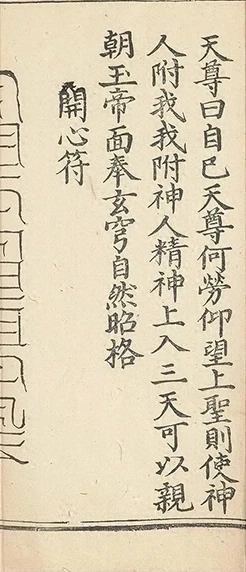 天尊曰自已天尊何勞仰望上聖則使神
人附我我附神人精神上入三天可以親
朝玉帝面奉玄穹自然昭格
開心符